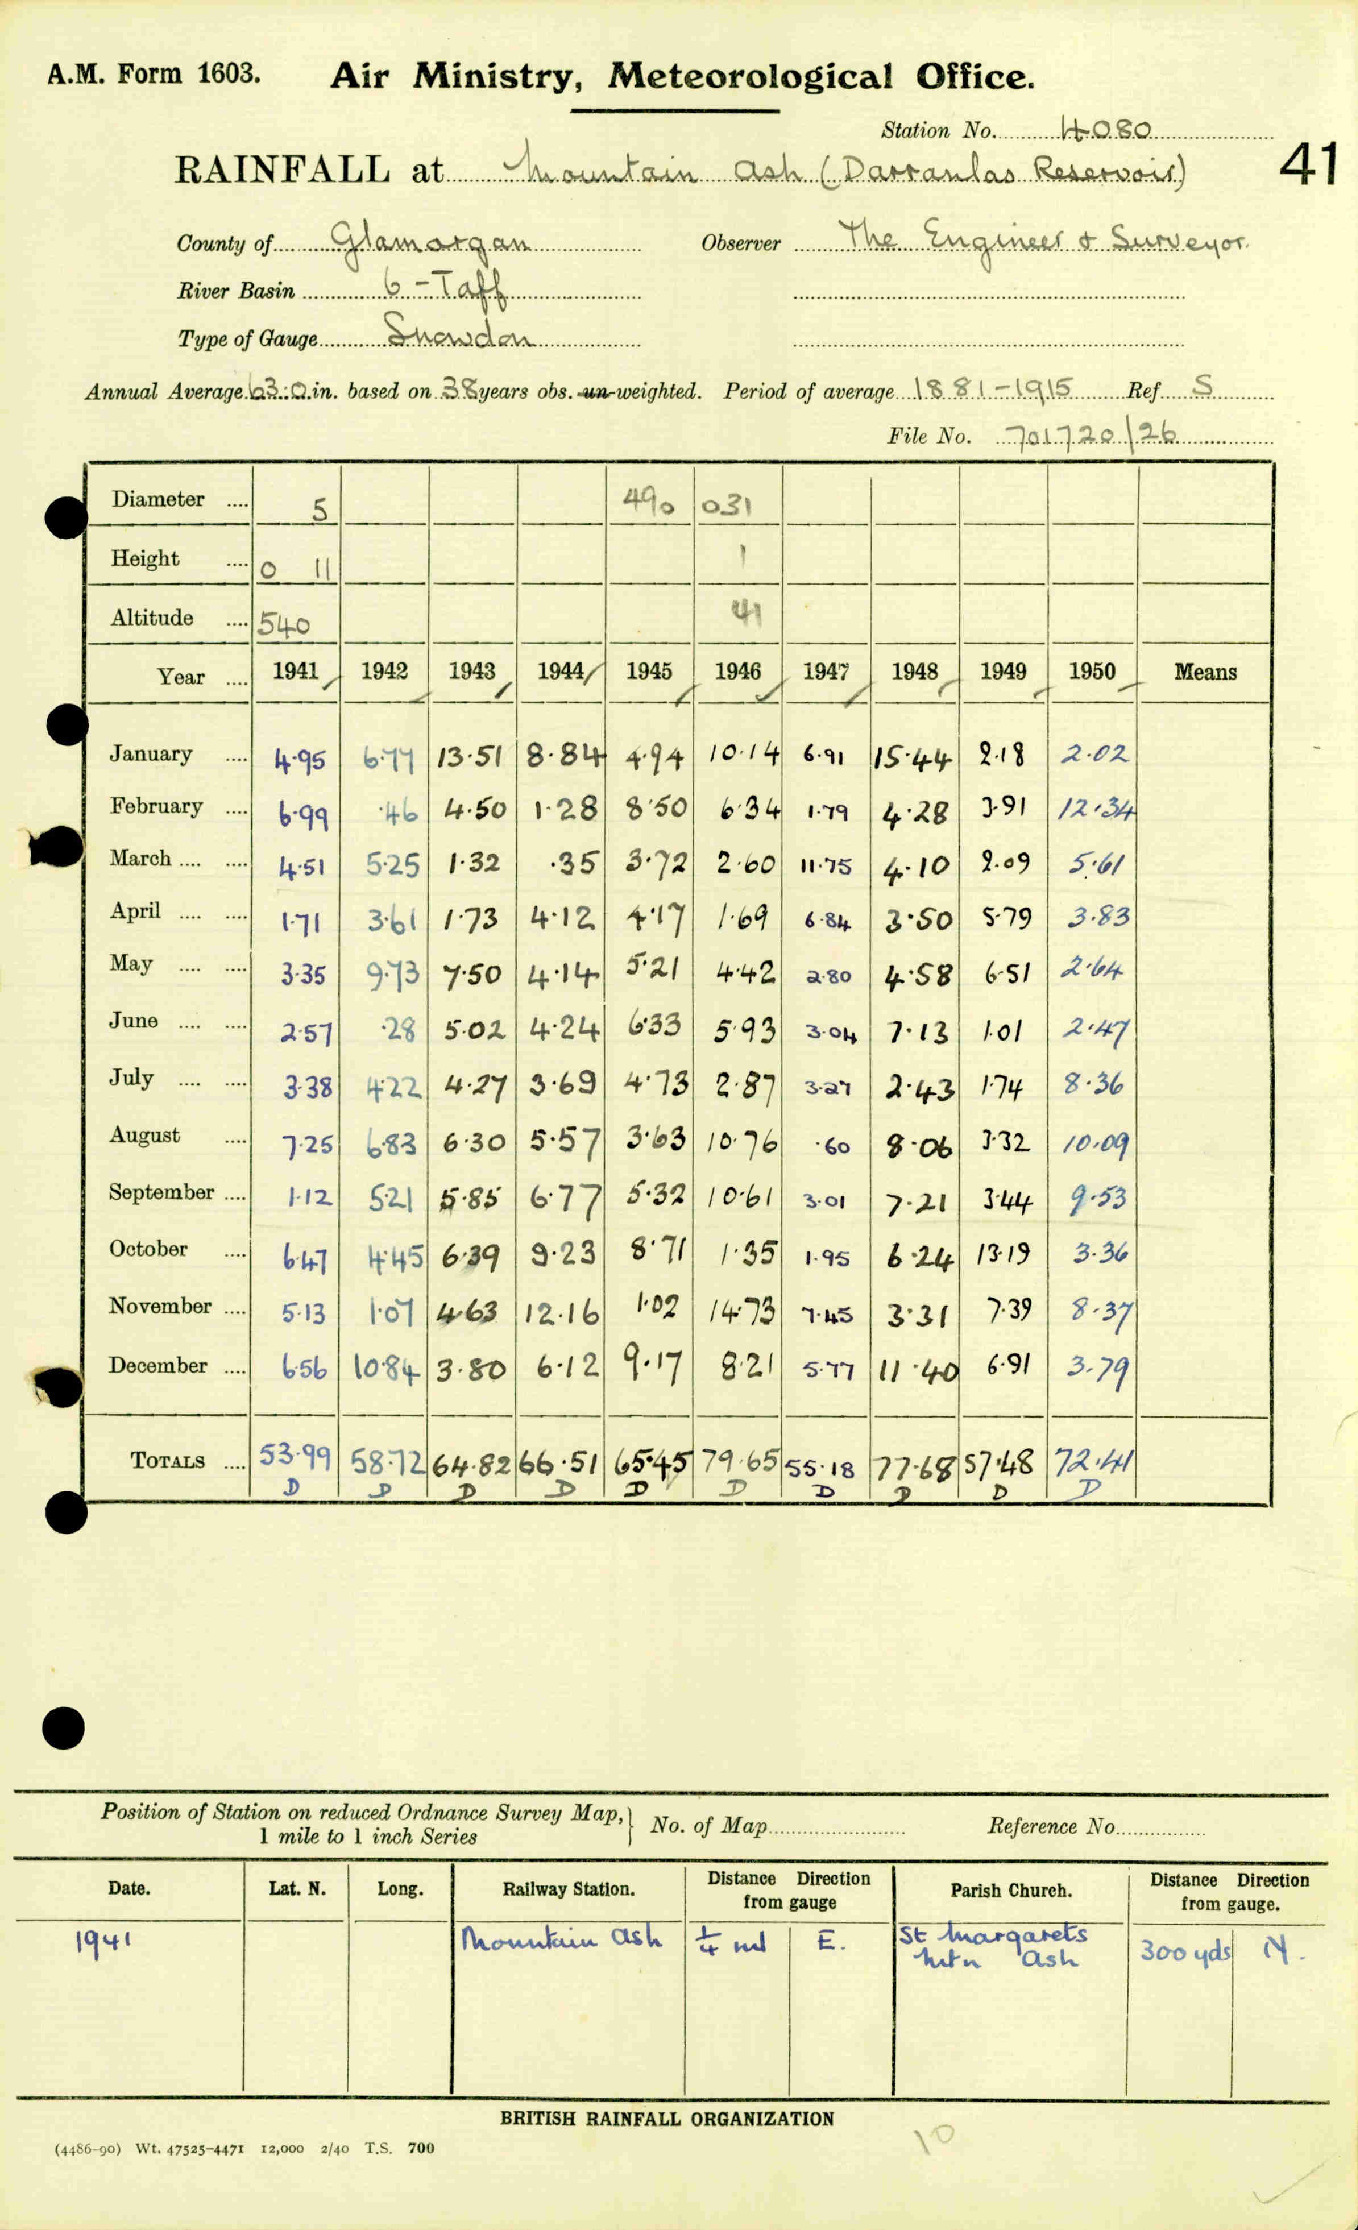 A.M. Form 1603. Air Ministry, Meteorological Office.
Station No. 4080
41
RAINFALL at Mountain Ash (Darranlas Reservoir)
County of Glamorgan Observer The Engineer & Surveyor.
River Basin 6 - Taff
Type of Gauge Snowdon
Annual Average 63.0 in. based on 38 years obs. un-weighted. Period of average 1881-1915 Ref S
File No. 701720/26
Diameter .... 5 490 031
Height .... 0 11 1
Altitude .... 540 41
Year .... 1941 1942 1943 1944 1945 1946 1947 1948 1949 1950 Means
January .... 4.95 6.77 13.51 8.84 4.94 10.14 6.91 15.44 2.18 2.02
February .... 6.99 .46 4.50 1.28 8.50 6.34 1.79 4.28 3.91 12.34
March .... .... 4.51 5.25 1.32 .35 3.72 2.60 11.75 4.10 2.09 5.61
April .... .... 1.71 3.61 1.73 4.12 4.17 1.69 6.84 3.50 5.79 3.83
May .... .... 3.35 9.73 7.50 4.14 5.21 4.42 2.80 4.58 6.51 2.64
June .... .... 2.57 .28 5.02 4.24 6.33 5.93 3.04 7.13 1.01 2.47
July .... .... 3.38 4.22 4.27 3.69 4.73 2.87 3.27 2.43 1.74 8.36
August .... 7.25 6.83 6.30 5.57 3.63 10.76 .60 8.06 3.32 10.09
September .... 1.12 5.21 5.85 6.77 5.32 10.61 3.01 7.21 3.44 9.53
October .... 6.47 4.45 6.39 9.23 8.71 1.35 1.95 6.24 13.19 3.36
November .... 5.13 1.07 4.63 12.16 1.02 14.73 7.45 3.31 7.39 8.37
December .... 6.56 10.84 3.80 6.12 9.17 8.21 5.77 11.40 6.91 3.79
TOTALS .... 53.99 58.72 64.82 66.51 65.45 79.65 55.18 77.68 57.48 72.41
D D D D D D D D D D
Position of Station on reduced Ordnance Survey Map, 1 mile to 1 inch Series No. of Map Reference No.
Date. Lat. N. Long. Railway Station. Distance Direction from gauge Parish Church. Distance Direction from gauge.
1941 Mountain Ash 1/4 ml E. St Margarets Mtn Ash 300 yds N.
BRITISH RAINFALL ORGANIZATION
10
(4486-90) Wt. 47525-4471 12,000 2/40 T.S. 700